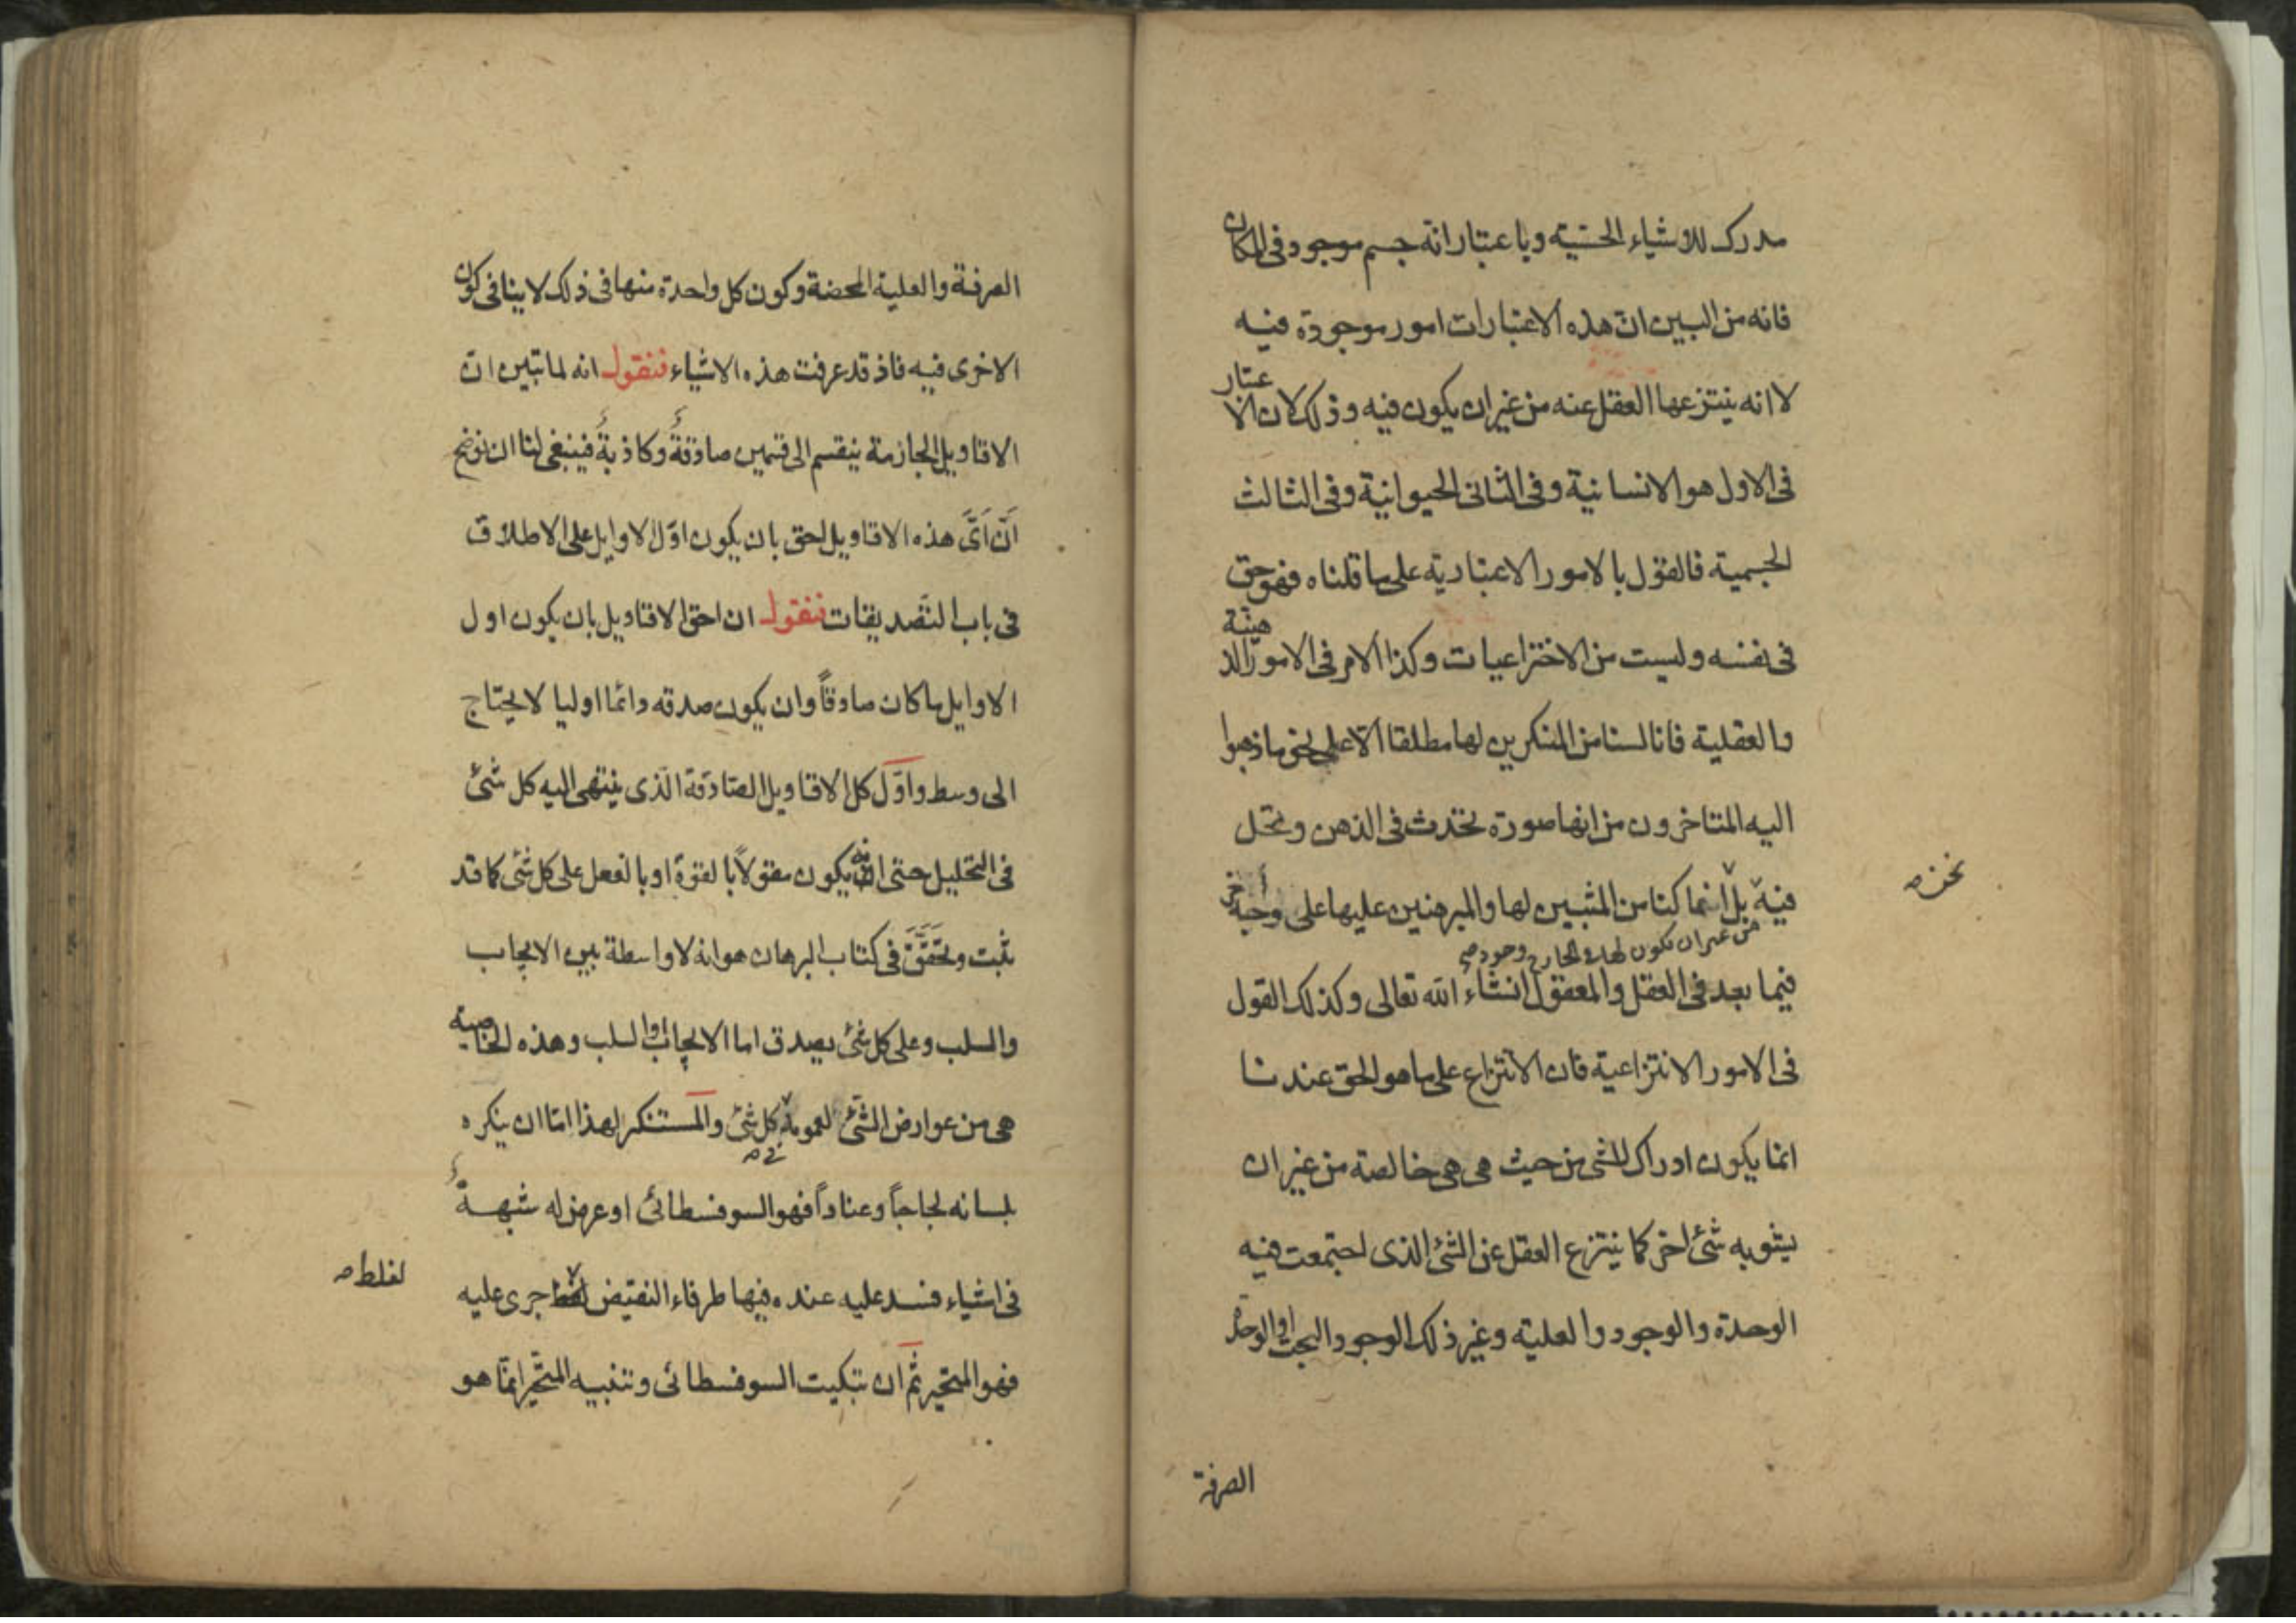 مدرك للاشياء الحسّية وباعتبار انه جسم موجود فى المكان
فانه من البين انّ هذه الاعتبارات امور موجودة فيه
لا انه ينتزعها العقل عنه من غير ان يكون فيه وذلك لان الاعتبار
فى الاول هو الانسانية وفى الثانى الحيوانية وفى الثالث
الجسمية فالقول بالامور الاعتبارية على ما قلناه فهو حق
فى نفسه وليست من الاختراعيات وكذا الامر فى الامور الذهنية
والعقلية فانا لسنا من المنكرين لها مطلقا الّا على نحو ما ذهبوا
اليه المتاخرون من انها صورة تحدث فى الذهن وتحل
فيه بل انما كنا من المثبين لها والمبرهنين عليها على وجه اخر
نحن صح
من غير ان تكون لها فى الخارج وجود صح
فيما بعد فى العقل والمعقول انشاء الله تعالى وكذلك القول
فى الامور الانتزاعية فان الانتزاع على ما هو الحق عندنا
انما يكون ادراك للشى من حيث هى هى خالصة من غير ان
يشوبه شئ اخر كما ينتزع العقل عن الشئ الذى اجتمعت فيه
الوحدة والوجود والعلية وغير ذلك الوجود البحت او الوحدة
الصرفة
الصرفة والعلية المحضة وكون كل واحدة منها فى ذلك لا ينافى كون
الاخرى فيه فاذ قد عرفت هذه الاشياء فنقول انه لما تبين انّ
الاقاويل الجازمة ينقسم الى قسمين صادقةٌ وكاذبةٌ فينبغى لنا ان نوضح
اَنّ اَىَّ هذه الاقاويل احق بان يكون اوّل الاوايل على الاطلاق
فى باب التصديقات فنقول ان احق الاقاويل بان يكون اول
الاوايل ما كان صادقاً وان يكون صدقه دائما اوليا لا يحتاج
الى وسط واوّل كل الاقاويل الصادقة الّذى ينتهى اليه كل شئ
فى التحليل حتى انه يكون مقولاً بالقوة او بالفعل على كل شئ كما قد
يثبت وتحَقَّقَ فى كتاب البرهان هو انه لا واسطة بين الايجاب
والسلب وعلى كل شئ يصدق اما الايجاب او السلب وهذه الخاصية
هى من عوارض الشئ لعمومة كل شئ والمستنكر لهذا امّا ان ينكره
بلسانه لجاجاً وعناداً فهو السوفسطائى او عرض له شبهةٌ
فى اشياء فسد عليه عنده فيها طرفاء النقيض لغلط جرى عليه
لغلط صح
فهو المتحير ثمّ ان تبكيت السوفسطائى وتنبيه المتحّير انّما هو